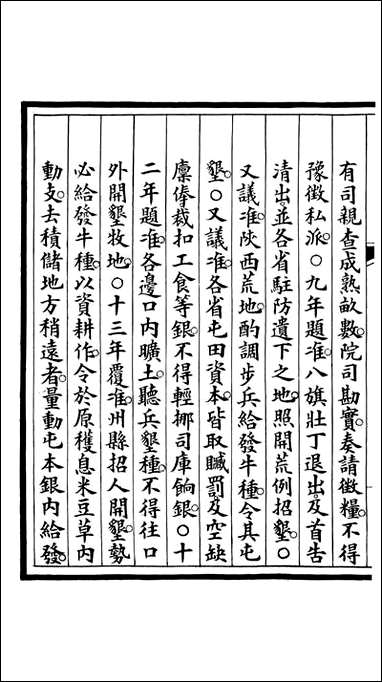 有司親查成熟畝數。院司勘實。奏請徵糧。不得
豫徵私派。○九年題准。八旗壯丁退出。及首告
清出。並各省駐防遺下之地。照開荒例招墾。○
又議准。陝西荒地。酌調步兵給發牛種。令其屯
墾。○又議准。各省屯田資本。皆取贓罰及空缺
廩俸。裁扣工食等銀。不得輕挪司庫餉銀。○十
二年題准。各邊口內曠土。聽兵墾種。不得往口
外開墾牧地。○十三年覆准。州縣招人開墾。勢
必給發牛種。以資耕作。令於原穫息米豆草內
動支。去積儲地方稍遠者。量動屯本銀內給發。